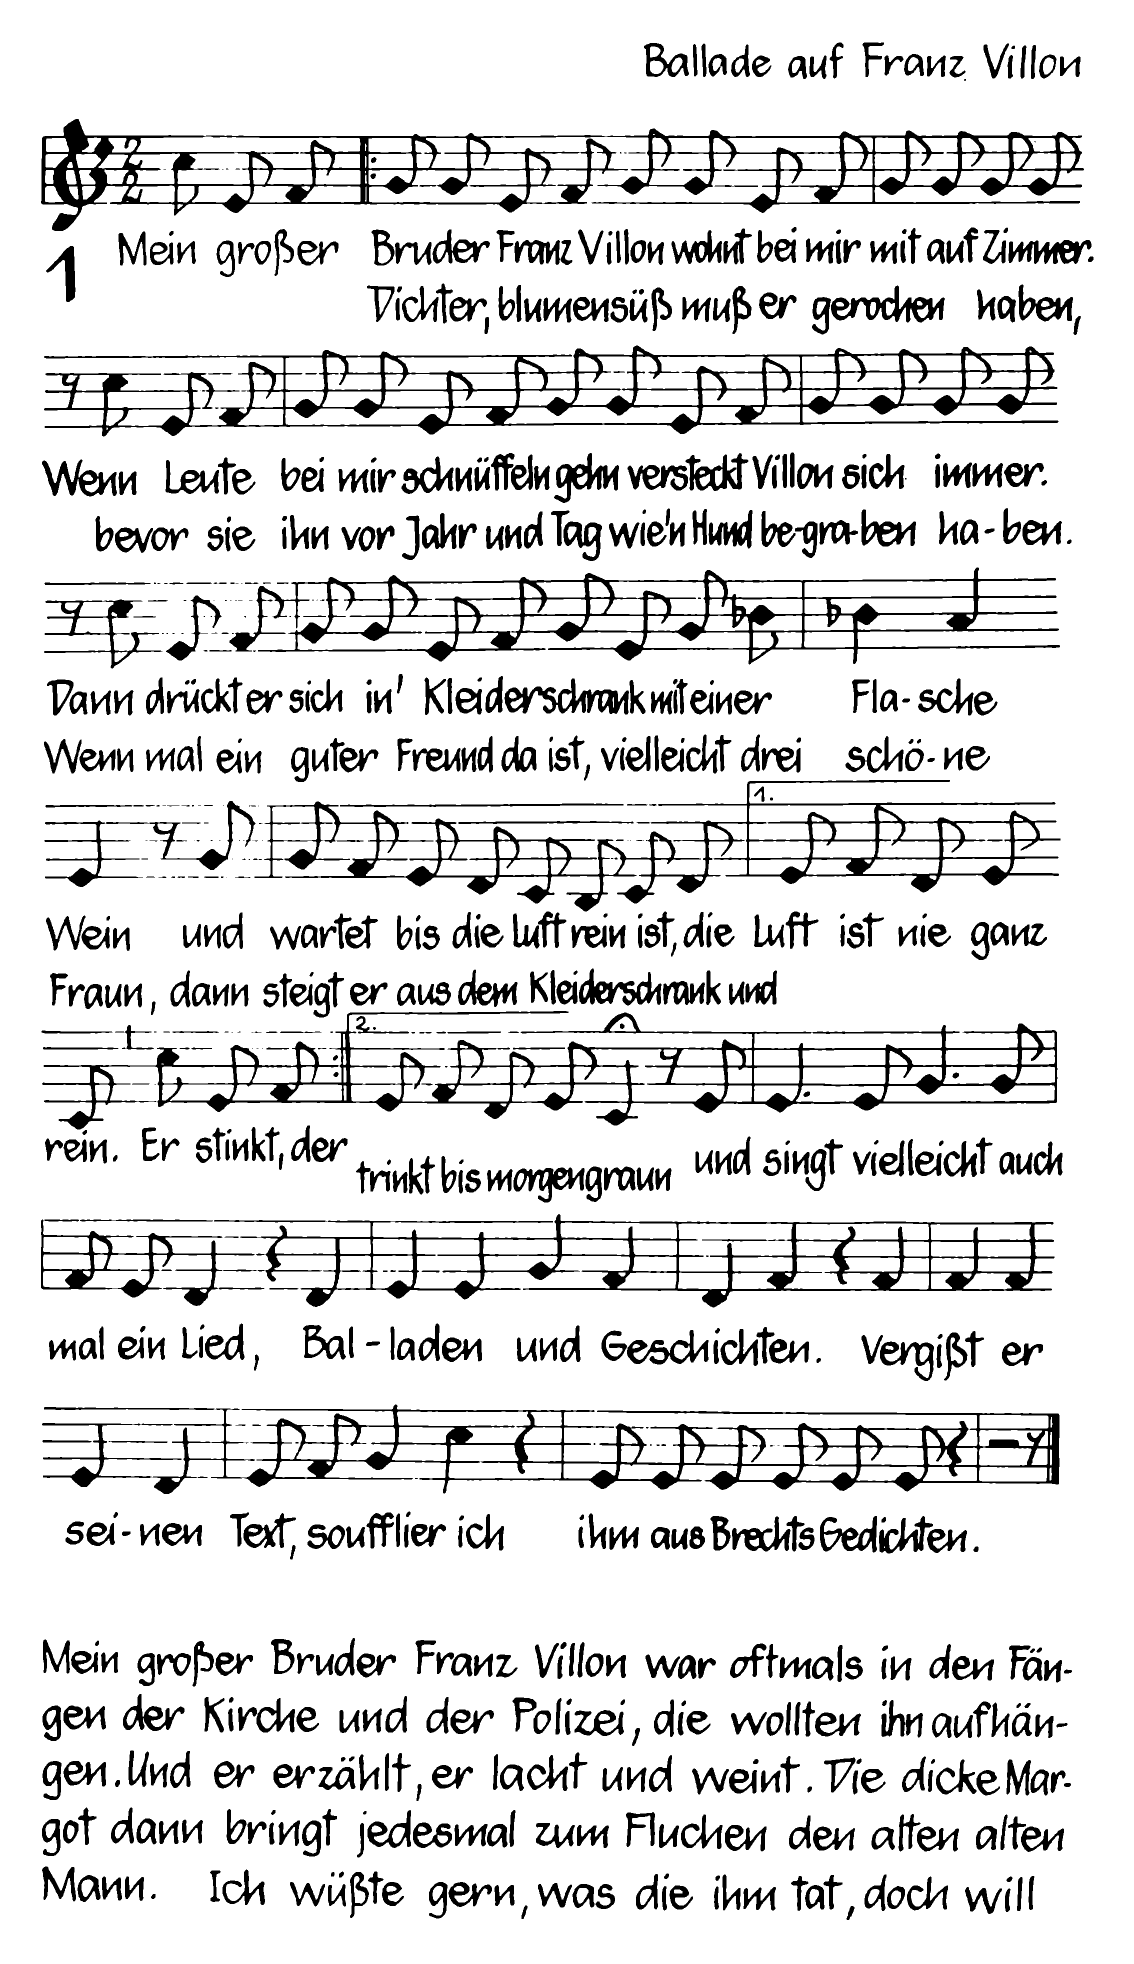 Ballade auf Franz Villon
1
Mein großer Bruder Franz Villon wohnt bei mir mit auf Zimmer.
Dichter, blumensüß muß er gerochen haben,
Wenn Leute bei mir schnüffeln gehn versteckt Villon sich immer.
bevor sie ihn vor Jahr und Tag wie'n Hund be-gra-ben ha-ben.
Dann drückt er sich in' Kleiderschrank mit einer Fla-sche
Wenn mal ein guter Freund da ist, vielleicht drei schö-ne
1.
Wein und wartet bis die Luft rein ist, die Luft ist nie ganz
Fraun, dann steigt er aus dem Kleiderschrank und
2.
rein. Er stinkt, der
trinkt bis morgengraun und singt vielleicht auch
mal ein Lied, Bal-laden und Geschichten. Vergißt er
sei-nen Text, soufflier ich ihm aus Brechts Gedichten.
Mein großer Bruder Franz Villon war oftmals in den Fän-
gen der Kirche und der Polizei, die wollten ihn aufhän-
gen. Und er erzählt, er lacht und weint. Die dicke Mar-
got dann bringt jedesmal zum Fluchen den alten alten
Mann. Ich wüßte gern, was die ihm tat, doch will